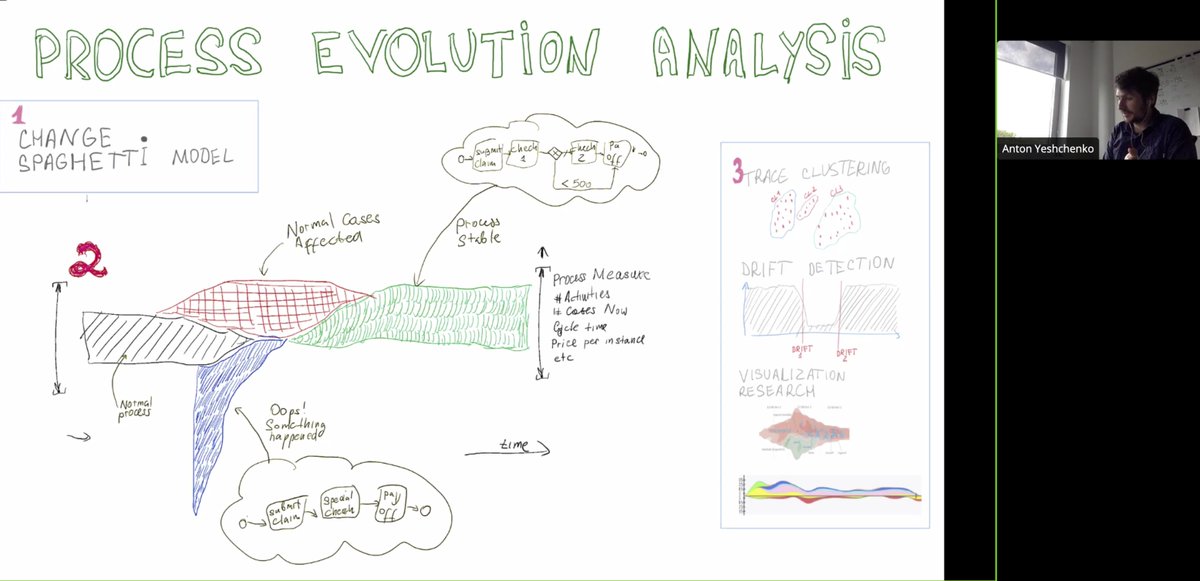 PROCESS EVOLUTION ANALYSIS
1
CHANGE
SPAGHETTI MODEL
2
Normal Cases
Affected
submit
claim
check
1
check
2
Pay
off
< 500
Process
Stable
Process Measure
# Activities
# Cases Now
Cycle time
Price per instance
etc
Normal
process
Oops!
Something
happened
time
submit
claim
special
check
pay
off
3
TRACE CLUSTERING
CL1
CL2
CL3
DRIFT DETECTION
DRIFT
1
DRIFT
2
VISUALIZATION
RESEARCH
Anton Yeshchenko